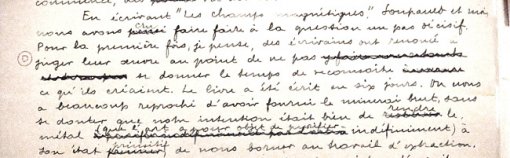 En écrivant "Les champs magnétiques", Soupault et moi
nous avons fait faire à la question un pas décisif.
Pour la première fois, je pense, des écrivains ont renoncé à
juger leur œuvre au point de ne pas
se donner le temps de reconnaître
ce qu'ils créaient. Le livre a été écrit en six jours. On nous
a beaucoup reproché d'avoir fourni le minerai brut, sans
se douter que notre intention était bien de rendre le
métal (que l'art a pour objet de purifier indéfiniment) à
son état primitif, de nous borner au travail d'extraction.